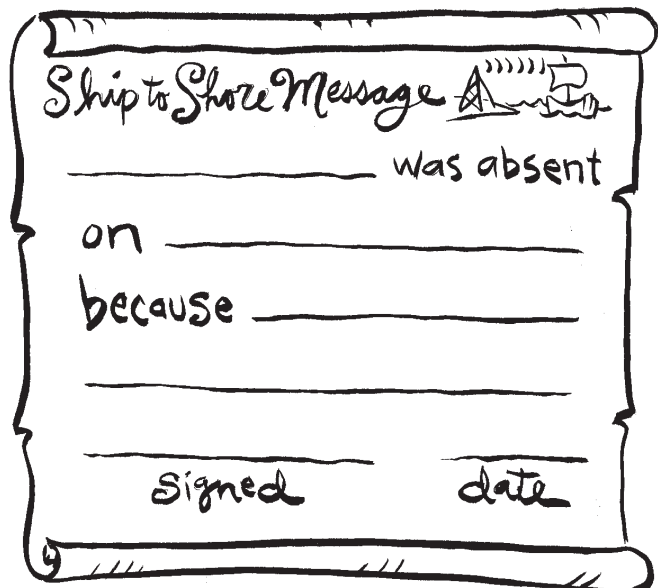 Ship to Shore Message
was absent
on
because
signed date